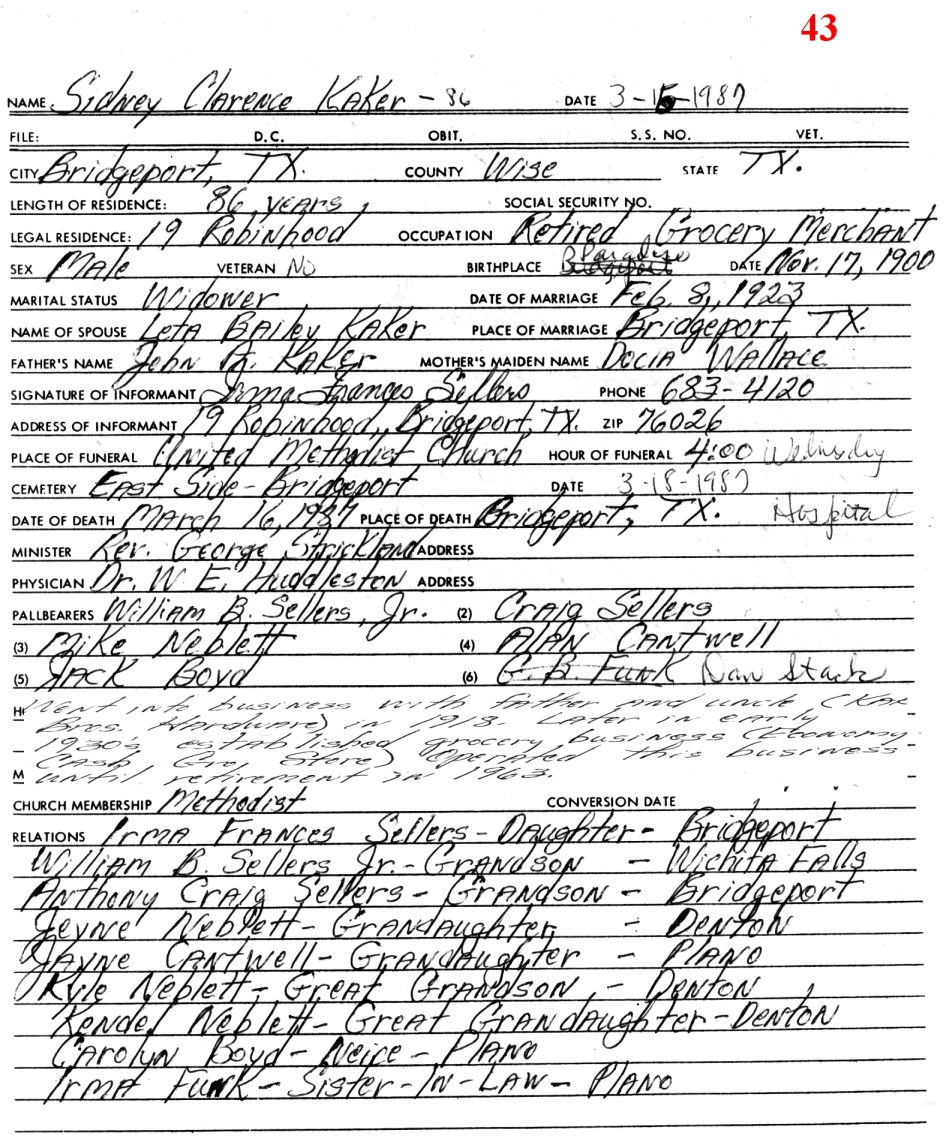 43
NAME Sidney Clarence Kaker - 86 DATE 3-16-1987
FILE: D.C. OBIT. S.S. NO. VET.
CITY Bridgeport, TX. COUNTY Wise STATE TX.
LENGTH OF RESIDENCE: 86 years, SOCIAL SECURITY NO.
LEGAL RESIDENCE: 19 Robinhood OCCUPATION Retired Grocery Merchant
SEX Male VETERAN No BIRTHPLACE Bridgeport Paradise DATE Nov. 17, 1900
MARITAL STATUS Widower DATE OF MARRIAGE Feb. 8, 1923
NAME OF SPOUSE Leta Bailey Kaker PLACE OF MARRIAGE Bridgeport, TX.
FATHER'S NAME John Kaker MOTHER'S MAIDEN NAME Docia Wallace
SIGNATURE OF INFORMANT Irma Frances Sellers PHONE 683-4120
ADDRESS OF INFORMANT 19 Robinhood, Bridgeport, TX. ZIP 76026
PLACE OF FUNERAL United Methodist Church HOUR OF FUNERAL 4:00 Wednesday
CEMETERY East Side - Bridgeport DATE 3-18-1987
DATE OF DEATH March 16, 1987 PLACE OF DEATH Bridgeport, TX. Hospital
MINISTER Rev. George Strickland ADDRESS
PHYSICIAN Dr. W. E. Huddleston ADDRESS
PALLBEARERS William B. Sellers, Jr. (2) Craig Sellers
(3) Mike Neblett (4) Alan Cantwell
(5) Jack Boyd (6) G. B. Funk Dan Stack
Hi Went into business with father and uncle (Kaker
Bros. Hardware) in 1918. Later in early
1930's established grocery business (Economy
Cash Gro. Store) Operated this business
M until retirement in 1963.
CHURCH MEMBERSHIP Methodist CONVERSION DATE
RELATIONS Irma Frances Sellers - Daughter - Bridgeport
William B. Sellers Jr. - Grandson - Wichita Falls
Anthony Craig Sellers - Grandson - Bridgeport
Jeyne Neblett - Grandaughter - Denton
Jayne Cantwell - Grandaughter - Plano
Kyle Neblett - Great Grandson - Denton
Kendel Neblett - Great Grandaughter - Denton
Carolyn Boyd - Neice - Plano
Irma Funk - Sister-In-Law - Plano